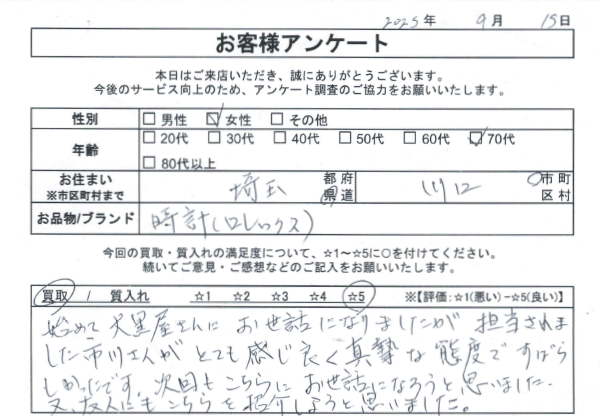 2025年 9月 15日
お客様アンケート
本日はご来店いただき、誠にありがとうございます。
今後のサービス向上のため、アンケート調査のご協力をお願いいたします。
性別 □ 男性 ☑ 女性 □ その他
年齢 □ 20代 □ 30代 □ 40代 □ 50代 □ 60代 ☑ 70代
□ 80代以上
お住まい ※市区町村まで 埼玉 都 府 県 道 川口 市 町 区 村
お品物/ブランド 時計(ロレックス)
今回の買取・質入れの満足度について、☆1～☆5に○を付けてください。
続いてご意見・ご感想などのご記入をお願いいたします。
買取 / 質入れ ☆1 ☆2 ☆3 ☆4 ☆5 ※【評価:☆1(悪い)−☆5(良い)】
始めて大黒屋さんにお世話になりましたが担当されま
した市川さんがとても感じ良く真摯な態度ですばら
しかったです。次回もこちらにお世話になろうと思いました.
又、友人にもこちらを紹介しようと思いました。